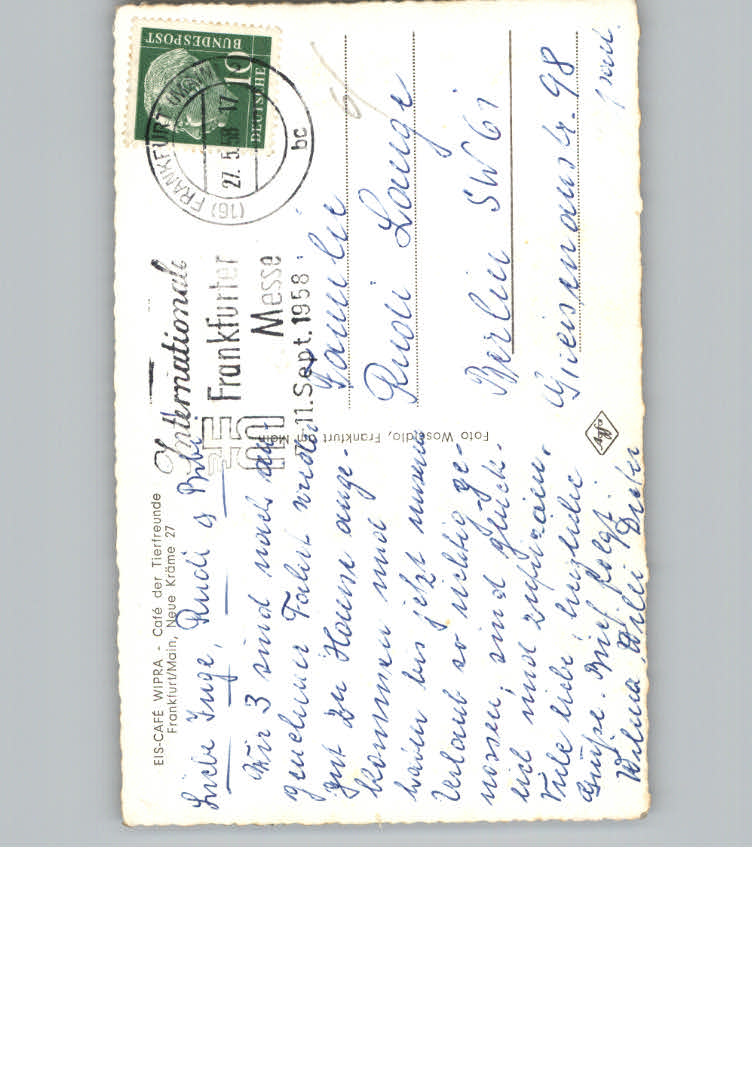 EIS-CAFÉ WIPRA - Café der Tierfreunde
Frankfurt/Main, Neue Kräme 27
Liebe Inge, Rudi & Bubi
Wir 3 sind nach an-
genehmer Fahrt wieder
gut zu Hause ange-
kommen und
haben bis jetzt unseren
Urlaub so richtig ge-
nossen, sind glück-
lich und zufrieden.
Viele liebe, herzliche
Grüße. Brief folgt
Wilma, Willi, Dieter
Foto Wose, Frankfurt Main
DEUTSCHE
BUNDESPOST
10
(16) FRANKFURT (MAIN)
27.5.58-17
bc
Internationale
Frankfurter
Messe
7.-11.Sept.1958
Familie
Rudi Lange
Berlin SW 61
Gneisenaustr. 98
Agfa